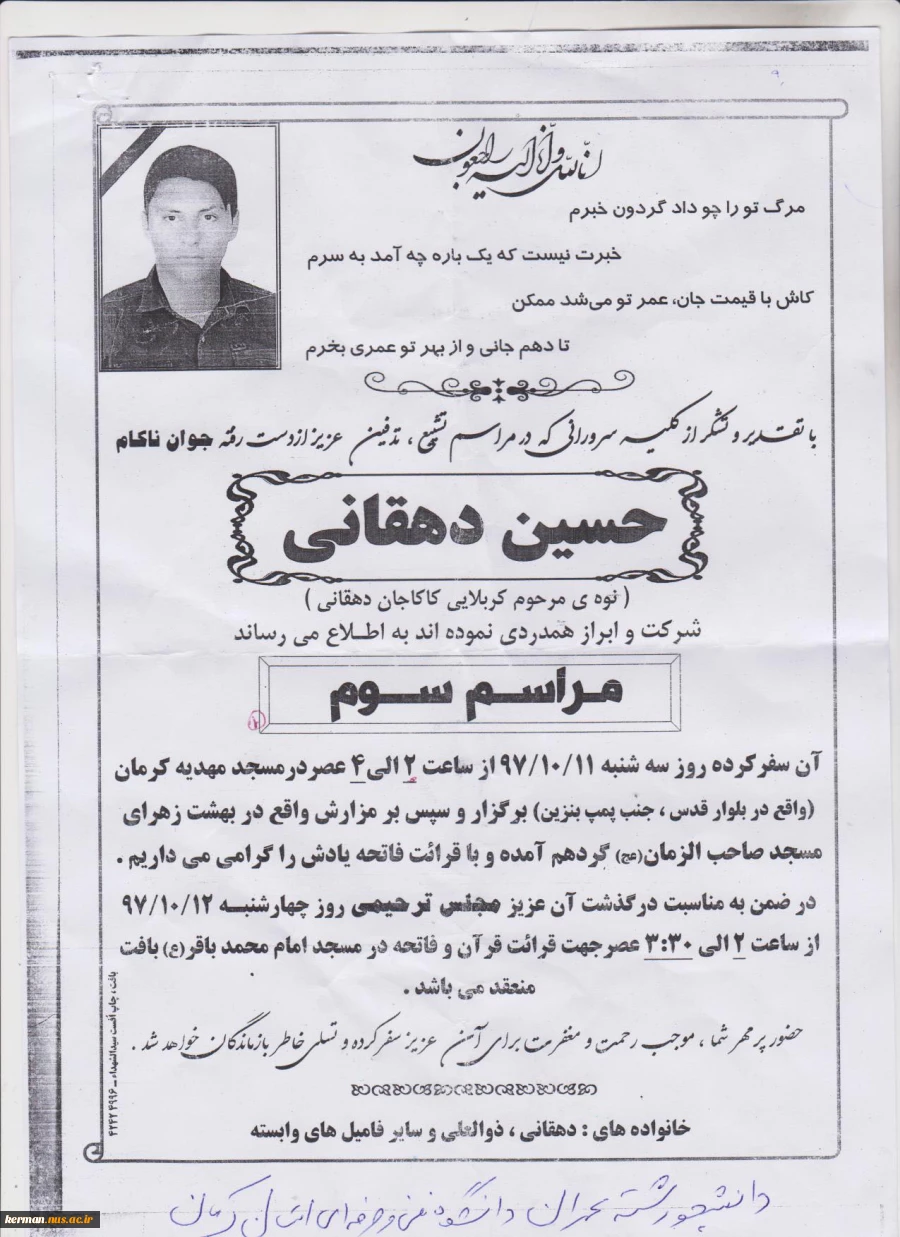 انا لله و انا الیه راجعون
مرگ تو را چو داد گردون خبرم
خبرت نیست که یک باره چه آمد به سرم
کاش با قیمت جان، عمر تو می‌شد ممکن
تا دهم جانی و از بهر تو عمری بخرم
با تقدیر و تشکر از کلیه سرورانی که در مراسم تشییع ، تدفین عزیز از دست رفته جوان ناکام
حسین دهقانی
( نوه ی مرحوم کربلایی کاکاجان دهقانی )
شرکت و ابراز همدردی نموده اند به اطلاع می رساند
مراسم سوم
آن سفرکرده روز سه شنبه ۹۷/۱۰/۱۱ از ساعت ۲ الی ۴ عصر در مسجد مهدیه کرمان
(واقع در بلوار قدس ، جنب پمپ بنزین) برگزار و سپس بر مزارش واقع در بهشت زهرای
مسجد صاحب الزمان(عج) گردهم آمده و با قرائت فاتحه یادش را گرامی می داریم .
در ضمن به مناسبت درگذشت آن عزیز مجلس ترحیمی روز چهارشنبه ۹۷/۱۰/۱۲
از ساعت ۲ الی ۳:۳۰ عصر جهت قرائت قرآن و فاتحه در مسجد امام محمد باقر(ع) بافت
منعقد می باشد .
حضور پر مهر شما ، موجب رحمت و مغفرت برای آن عزیز سفر کرده و تسلی خاطر بازماندگان خواهد شد .
خانواده های : دهقانی ، ذوالعلی و سایر فامیل های وابسته
بافت ، چاپ افست سیدالشهداء ــ ۴۲۴۲۴۹۹۶
دانشجو رشته عمران دانشگاه فنی و حرفه ای استان کرمان
kerman.nus.ac.ir